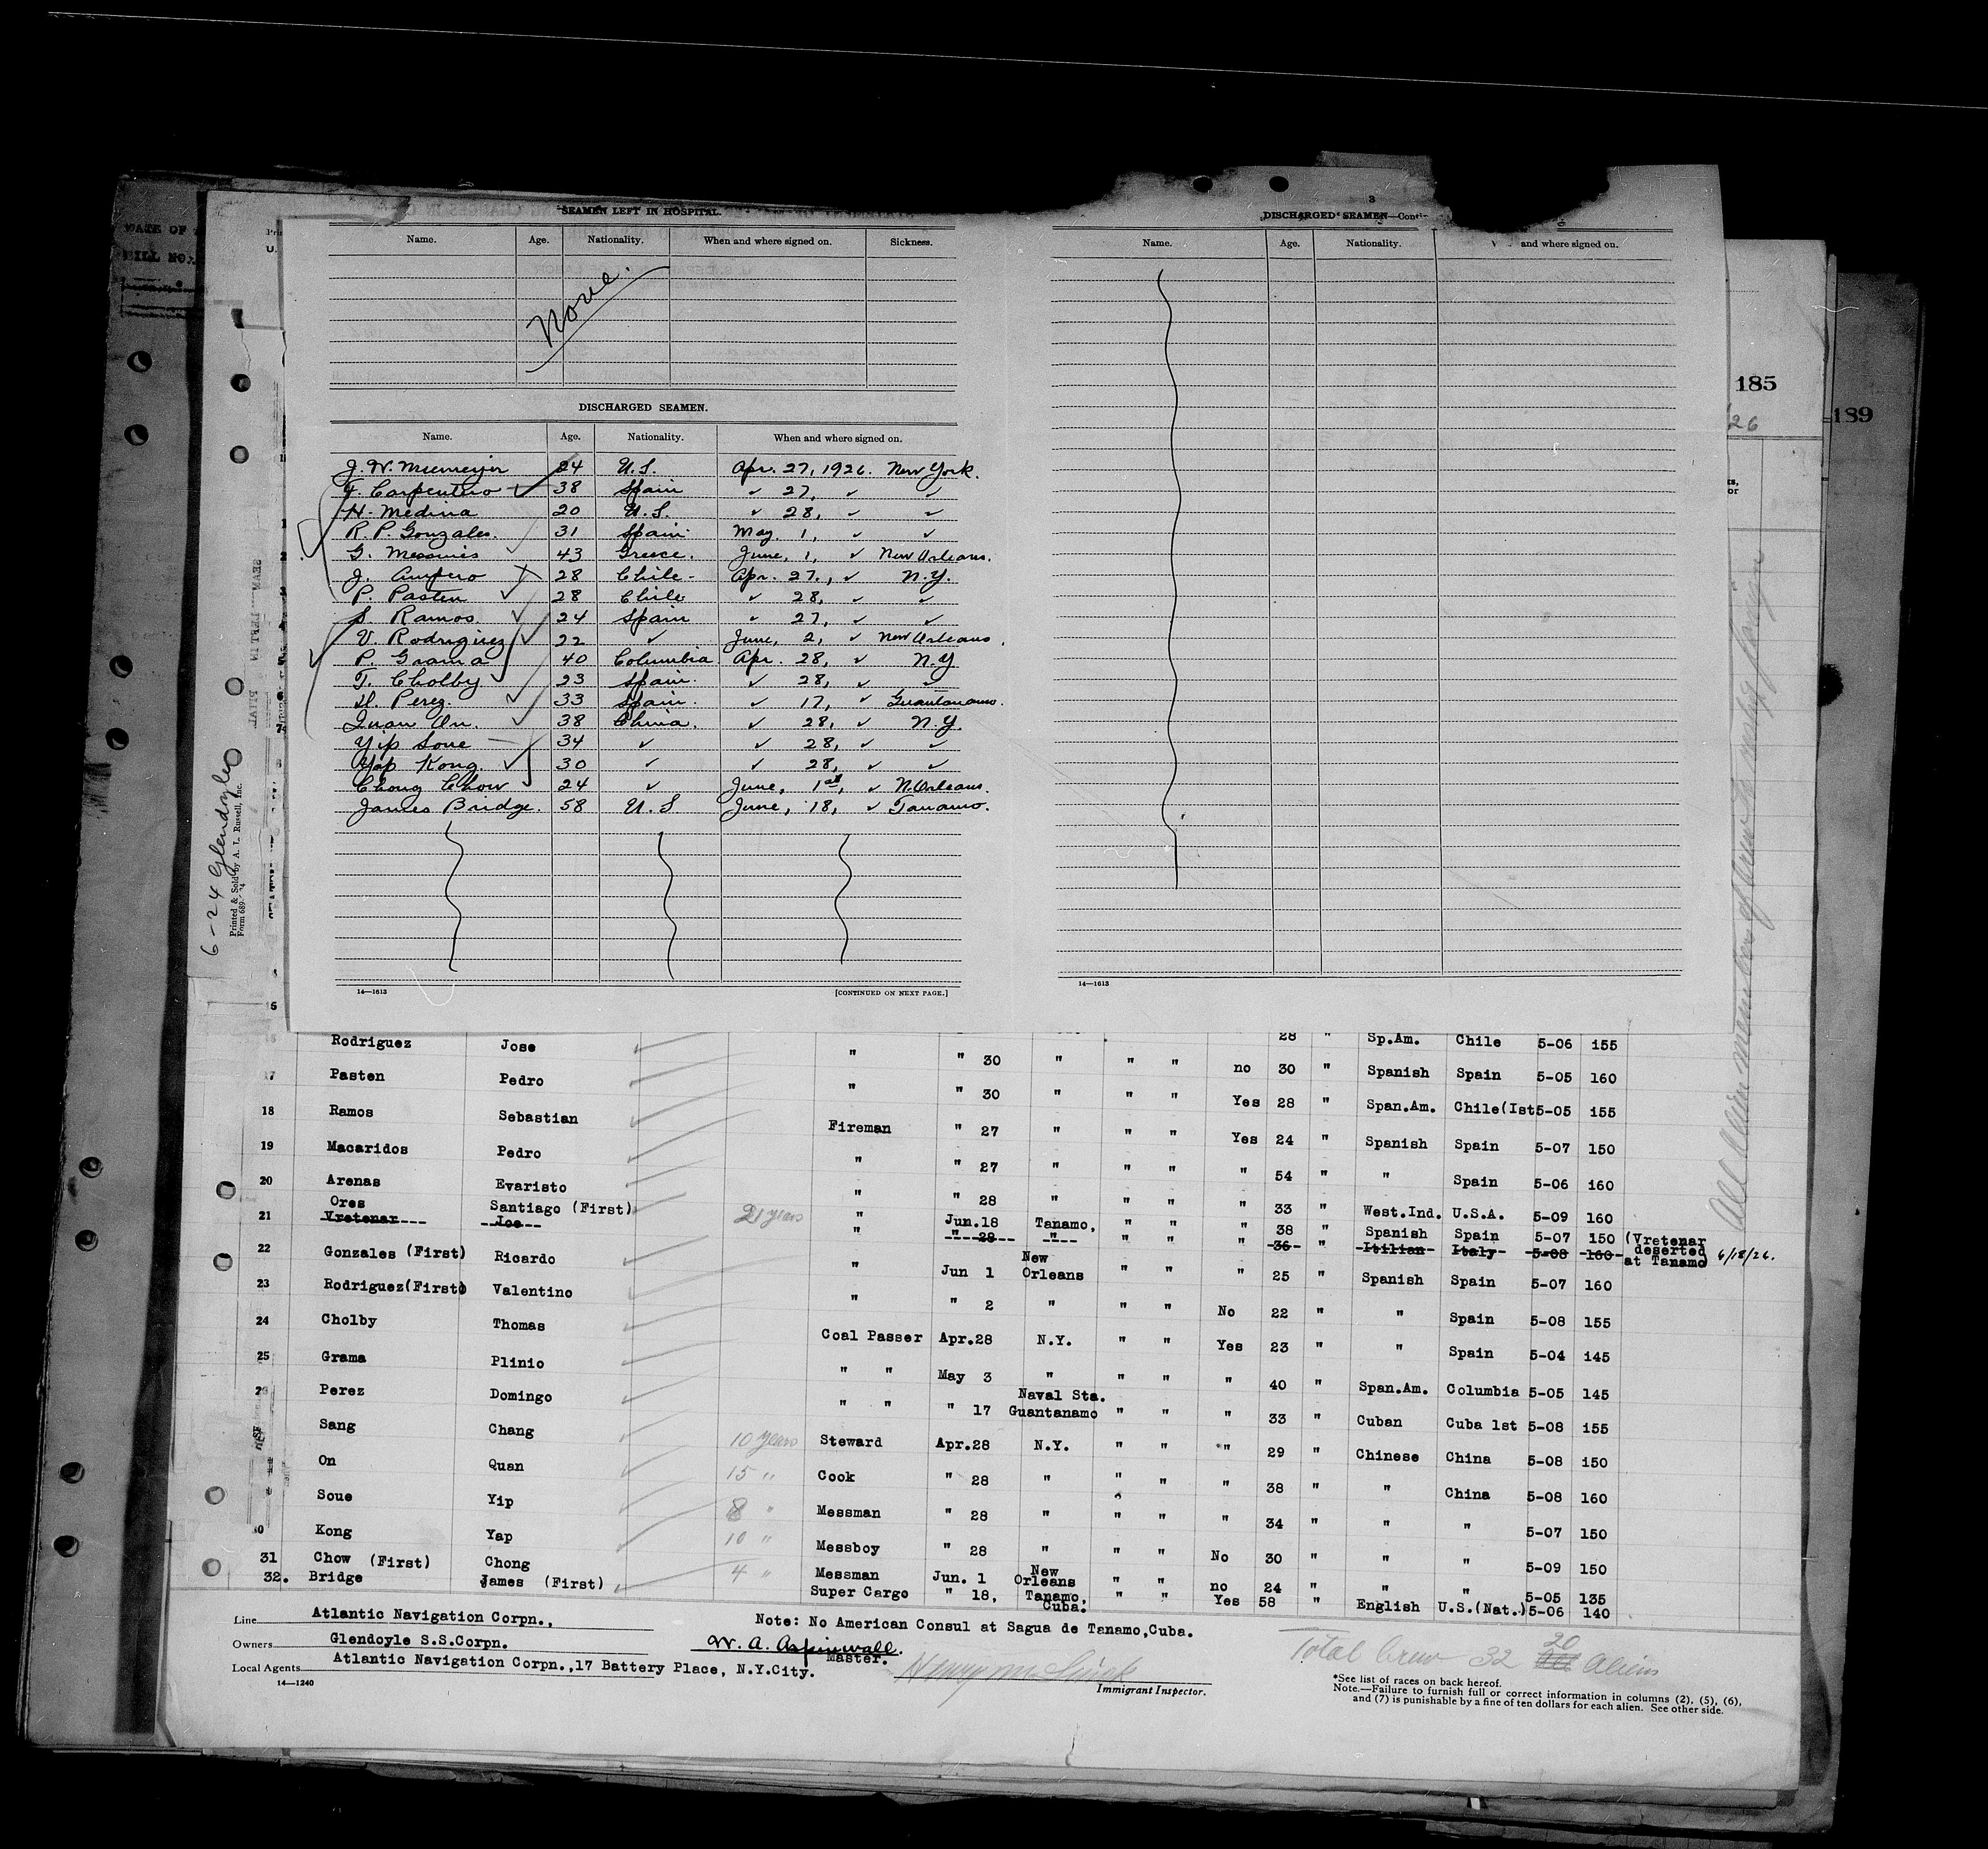 SEAMEN LEFT IN HOSPITAL.
Name. Age. Nationality. When and where signed on. Sickness.
None.
DISCHARGED SEAMEN.
Name. Age. Nationality. When and where signed on.
24 U.S. Apr. 27, 1926. New York.
38 Spain " 27, " "
H. Medina 20 U.S. " 28, " "
R. P. Gonzales. 31 Spain May. 1, " "
G. 43 Greece. June, 1, " New Orleans.
J. 28 Chile - Apr. 27., " N.Y.
P. Pasten 28 Chile " 28, " "
S. Ramos. 24 Spain " 27, " "
V. Rodriguez 22 " June, 2, " New Orleans.
P. Grama 40 Columbia Apr. 28, " N.Y
T. Cholby 23 Spain. " 28, " "
D. Perez. 33 Spain. " 17, " Guantanamo.
Quan On. 38 China. " 28, " N.Y.
Yip Soue 34 " " 28, " "
Yap Kong. 30 " " 28, " "
Chong Chow 24 " June, 1st, " N.Orleans.
James Bridge. 58 U.S June, 18, " Tanamo.
14—1613 [CONTINUED ON NEXT PAGE.]
3
DISCHARGED SEAMEN—Conti
Name. Age. Nationality. and where signed on.
14—1613
185
26
189
6-24 Glendoyle
Printed & Sold by A. L. Russell, Inc.
All alien members of crew
Rodriguez Jose " " 30 " " " no 28 " Sp.Am. Chile 5-06 155
17 Pasten Pedro " " 30 " " " 30 " Spanish Spain 5-05 160
18 Ramos Sebastian Fireman " 27 " " " Yes 28 " Span.Am. Chile(Ist 5-05 155
19 Macaridos Pedro " " 27 " " " Yes 24 " Spanish Spain 5-07 150
20 Arenas Evaristo " " 28 " " " " 54 " " Spain 5-06 160
Ores Santiago (First) 21 years " Jun.18 Tanamo, " " " 33 " West.Ind. U.S.A. 5-09 160
21 Vretenar Joe " " 28 " " " " 38 " Spanish Spain 5-07 150 (Vretenar
36 " Itilian Italy 5-08 160 deserted
at Tanamo) 6/18/26.
22 Gonzales (First) Ricardo " Jun 1 New Orleans " " " 25 " Spanish Spain 5-07 160
23 Rodriguez(First) Valentino " " 2 " " " No 22 " " Spain 5-08 155
24 Cholby Thomas Coal Passer Apr.28 N.Y. " " Yes 23 " " Spain 5-04 145
25 Grama Plinio " " May 3 " " " " 40 " Span.Am. Columbia 5-05 145
26 Perez Domingo " " " 17 Naval Sta. Guantanamo " " " 33 " Cuban Cuba 1st 5-08 155
Sang Chang 10 years Steward Apr.28 N.Y. " " " 29 " Chinese China 5-08 150
On Quan 15 " Cook " 28 " " " " 38 " " China 5-08 160
Soue Yip 8 " Messman " 28 " " " " 34 " " " 5-07 150
30 Kong Yap 10 " Messboy " 28 " " " No 30 " " " 5-09 150
31 Chow (First) Chong 4 " Messman Jun. 1 New Orleans " " no 24 " " " 5-05 135
32. Bridge James (First) Super Cargo " 18, Tanamo, Cuba. " " Yes 58 " English U.S.(Nat.) 5-06 140
Line Atlantic Navigation Corpn.,
Note: No American Consul at Sagua de Tanamo,Cuba.
Owners Glendoyle S.S.Corpn.
W. A. Aspinwall.
Master.
Local Agents Atlantic Navigation Corpn.,17 Battery Place, N.Y.City.
Immigrant Inspector.
Total Crew 32 20 Aliens
14—1240
*See list of races on back hereof.
Note.—Failure to furnish full or correct information in columns (2), (5), (6),
and (7) is punishable by a fine of ten dollars for each alien. See other side.